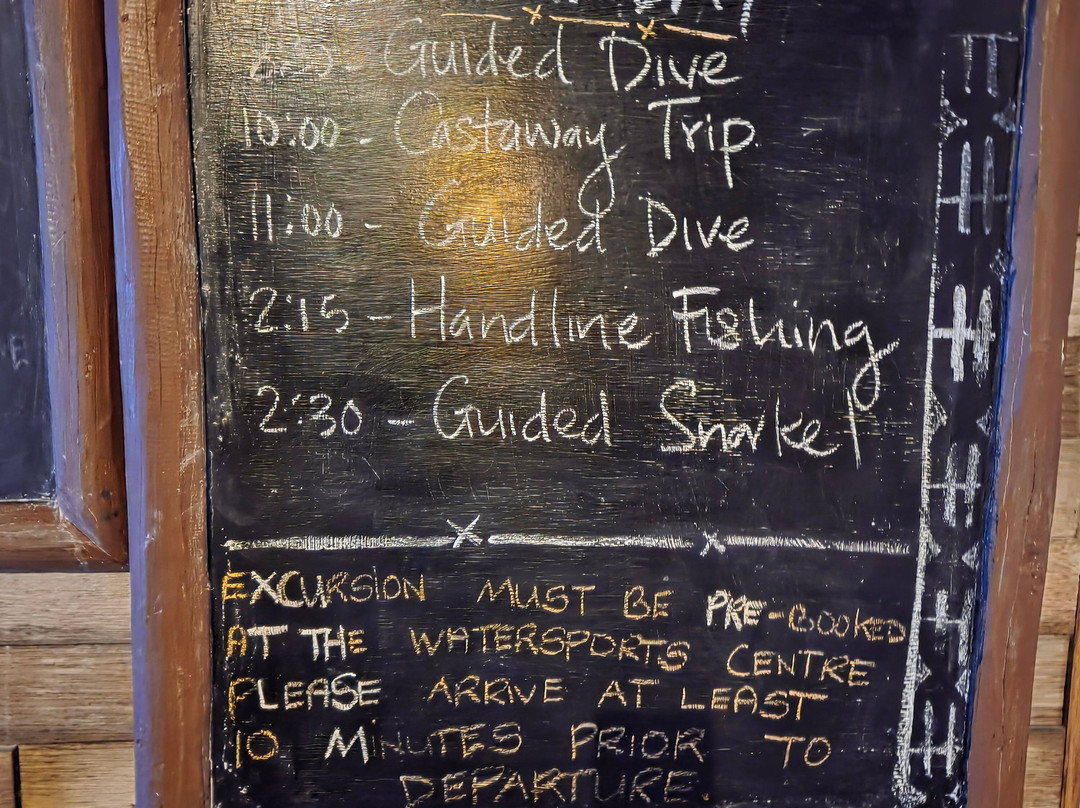 Guided Dive
10:00 - Castaway Trip.
11:00 - Guided Dive
2:15 - Handline Fishing
2:30 - Guided Snorkel
EXCURSION MUST BE PRE-BOOKED
AT THE WATERSPORTS CENTRE
PLEASE ARRIVE AT LEAST
10 MINUTES PRIOR TO
DEPARTURE.